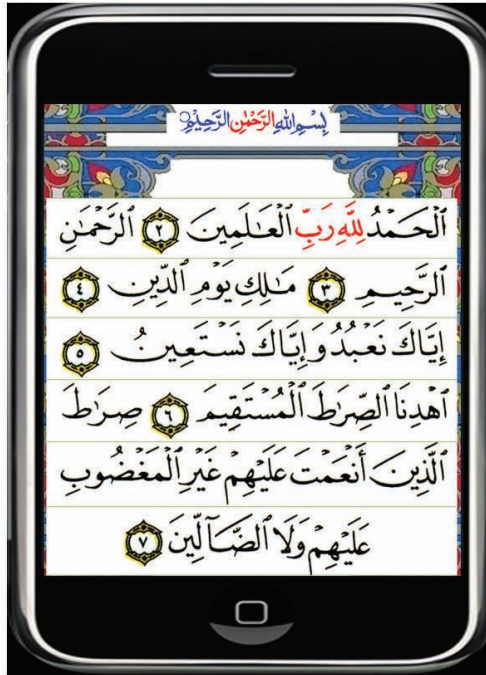 بِسْمِ اللهِ الرَّحْمٰنِ الرَّحِيْمِ
ٱلْحَمْدُ لِلَّهِ رَبِّ ٱلْعَـٰلَمِينَ ٢ ٱلرَّحْمَـٰنِ
ٱلرَّحِيمِ ٣ مَـٰلِكِ يَوْمِ ٱلدِّينِ ٤
إِيَّاكَ نَعْبُدُ وَإِيَّاكَ نَسْتَعِينُ ٥
ٱهْدِنَا ٱلصِّرَٰطَ ٱلْمُسْتَقِيمَ ٦ صِرَٰطَ
ٱلَّذِينَ أَنْعَمْتَ عَلَيْهِمْ غَيْرِ ٱلْمَغْضُوبِ
عَلَيْهِمْ وَلَا ٱلضَّآلِّينَ ٧